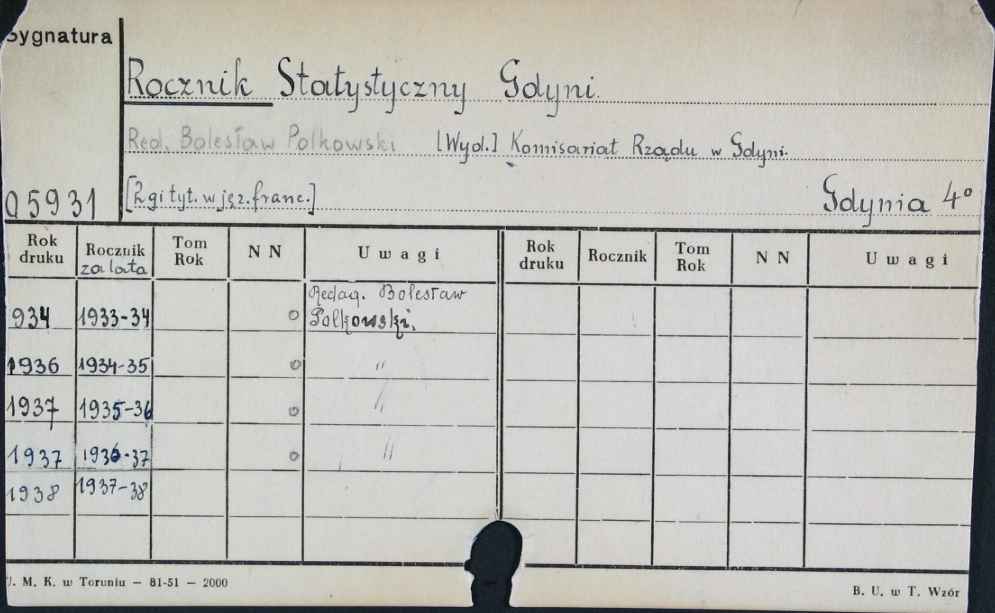 Sygnatura
Rocznik Statystyczny Gdyni.
Red. Bolesław Polkowski [Wyd.] Komisariat Rządu w Gdyni.
05931 [2gi tyt. w jęz. franc.] Gdynia 4°
Rok druku Rocznik za lata Tom Rok N N Uwagi Rok druku Rocznik Tom Rok N N Uwagi
934 1933-34 o Redag. Bolesław Polkowski.
1936 1934-35 o "
1937 1935-36 o "
1937 1936-37 o "
1938 1937-38
U. M. K. w Toruniu — 81-51 — 2000 B. U. w T. Wzór